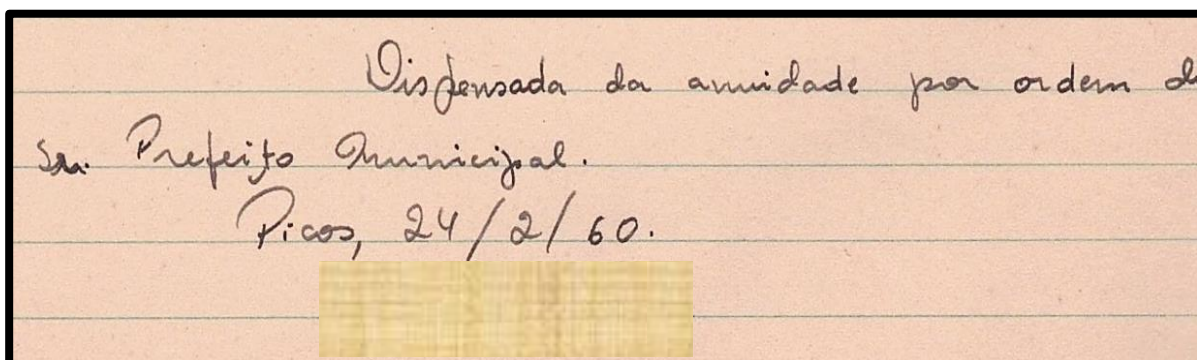 Dispensada da anuidade por ordem do
Sr. Prefeito Municipal.
Picos, 24/2/60.